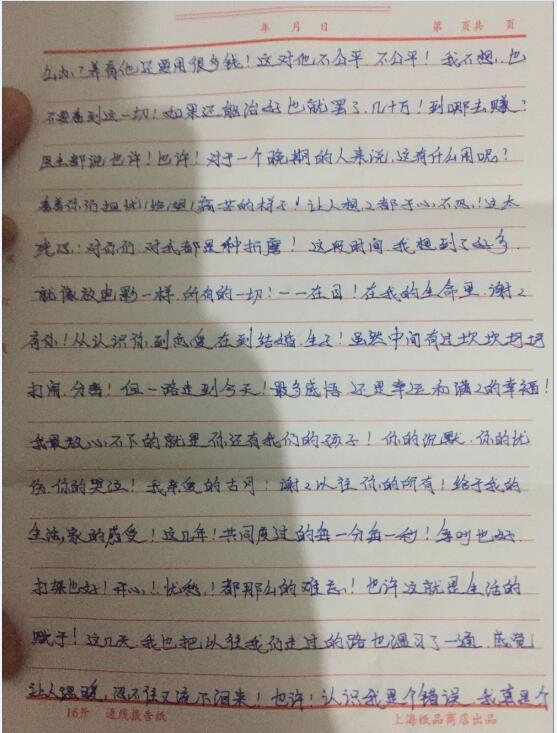 年 月 日 第 页共 页
么办？养育他还要用很多钱！这对他不公平 不公平！我不想，也
不要看到这一切！如果还能治好也就罢了，几十万！到哪去赚？
医生都说也许！也许！对于一个晚期的人来说，这有什么用呢？
看着你们担忧！ 痛苦的样子！让人想々都于心不忍，！这太
对你们 对我都是种折磨！这段时间 我想到了好多
就像放电影一样 所有的一切！一一在目！在我的生命里 谢々
有你！从认识你，到恋爱 在到结婚 生子！虽然中间有过坎坎坷坷
打闹 分离！但一路走到今天！最多感悟 还是幸运和满々的幸福！
我最放心不下的就是你还有我们的孩子！你的沉默 你的忧
伤 你的哭泣！我亲爱的古月！谢々以往你的所有！给于我的
生活，家的感受！这几年！共同度过的每一分每一秒！争吵也好
打架也好！开心！忧愁！都那么的难忘！也许这就是生活的
赋于！这几天 我也把以往我们走过的路也温习了一遍 感觉
让人温暖，忍不住又流下泪来！也许！认识我是个错误 我真是个
16开 通线报告纸 上海纸品商店出品